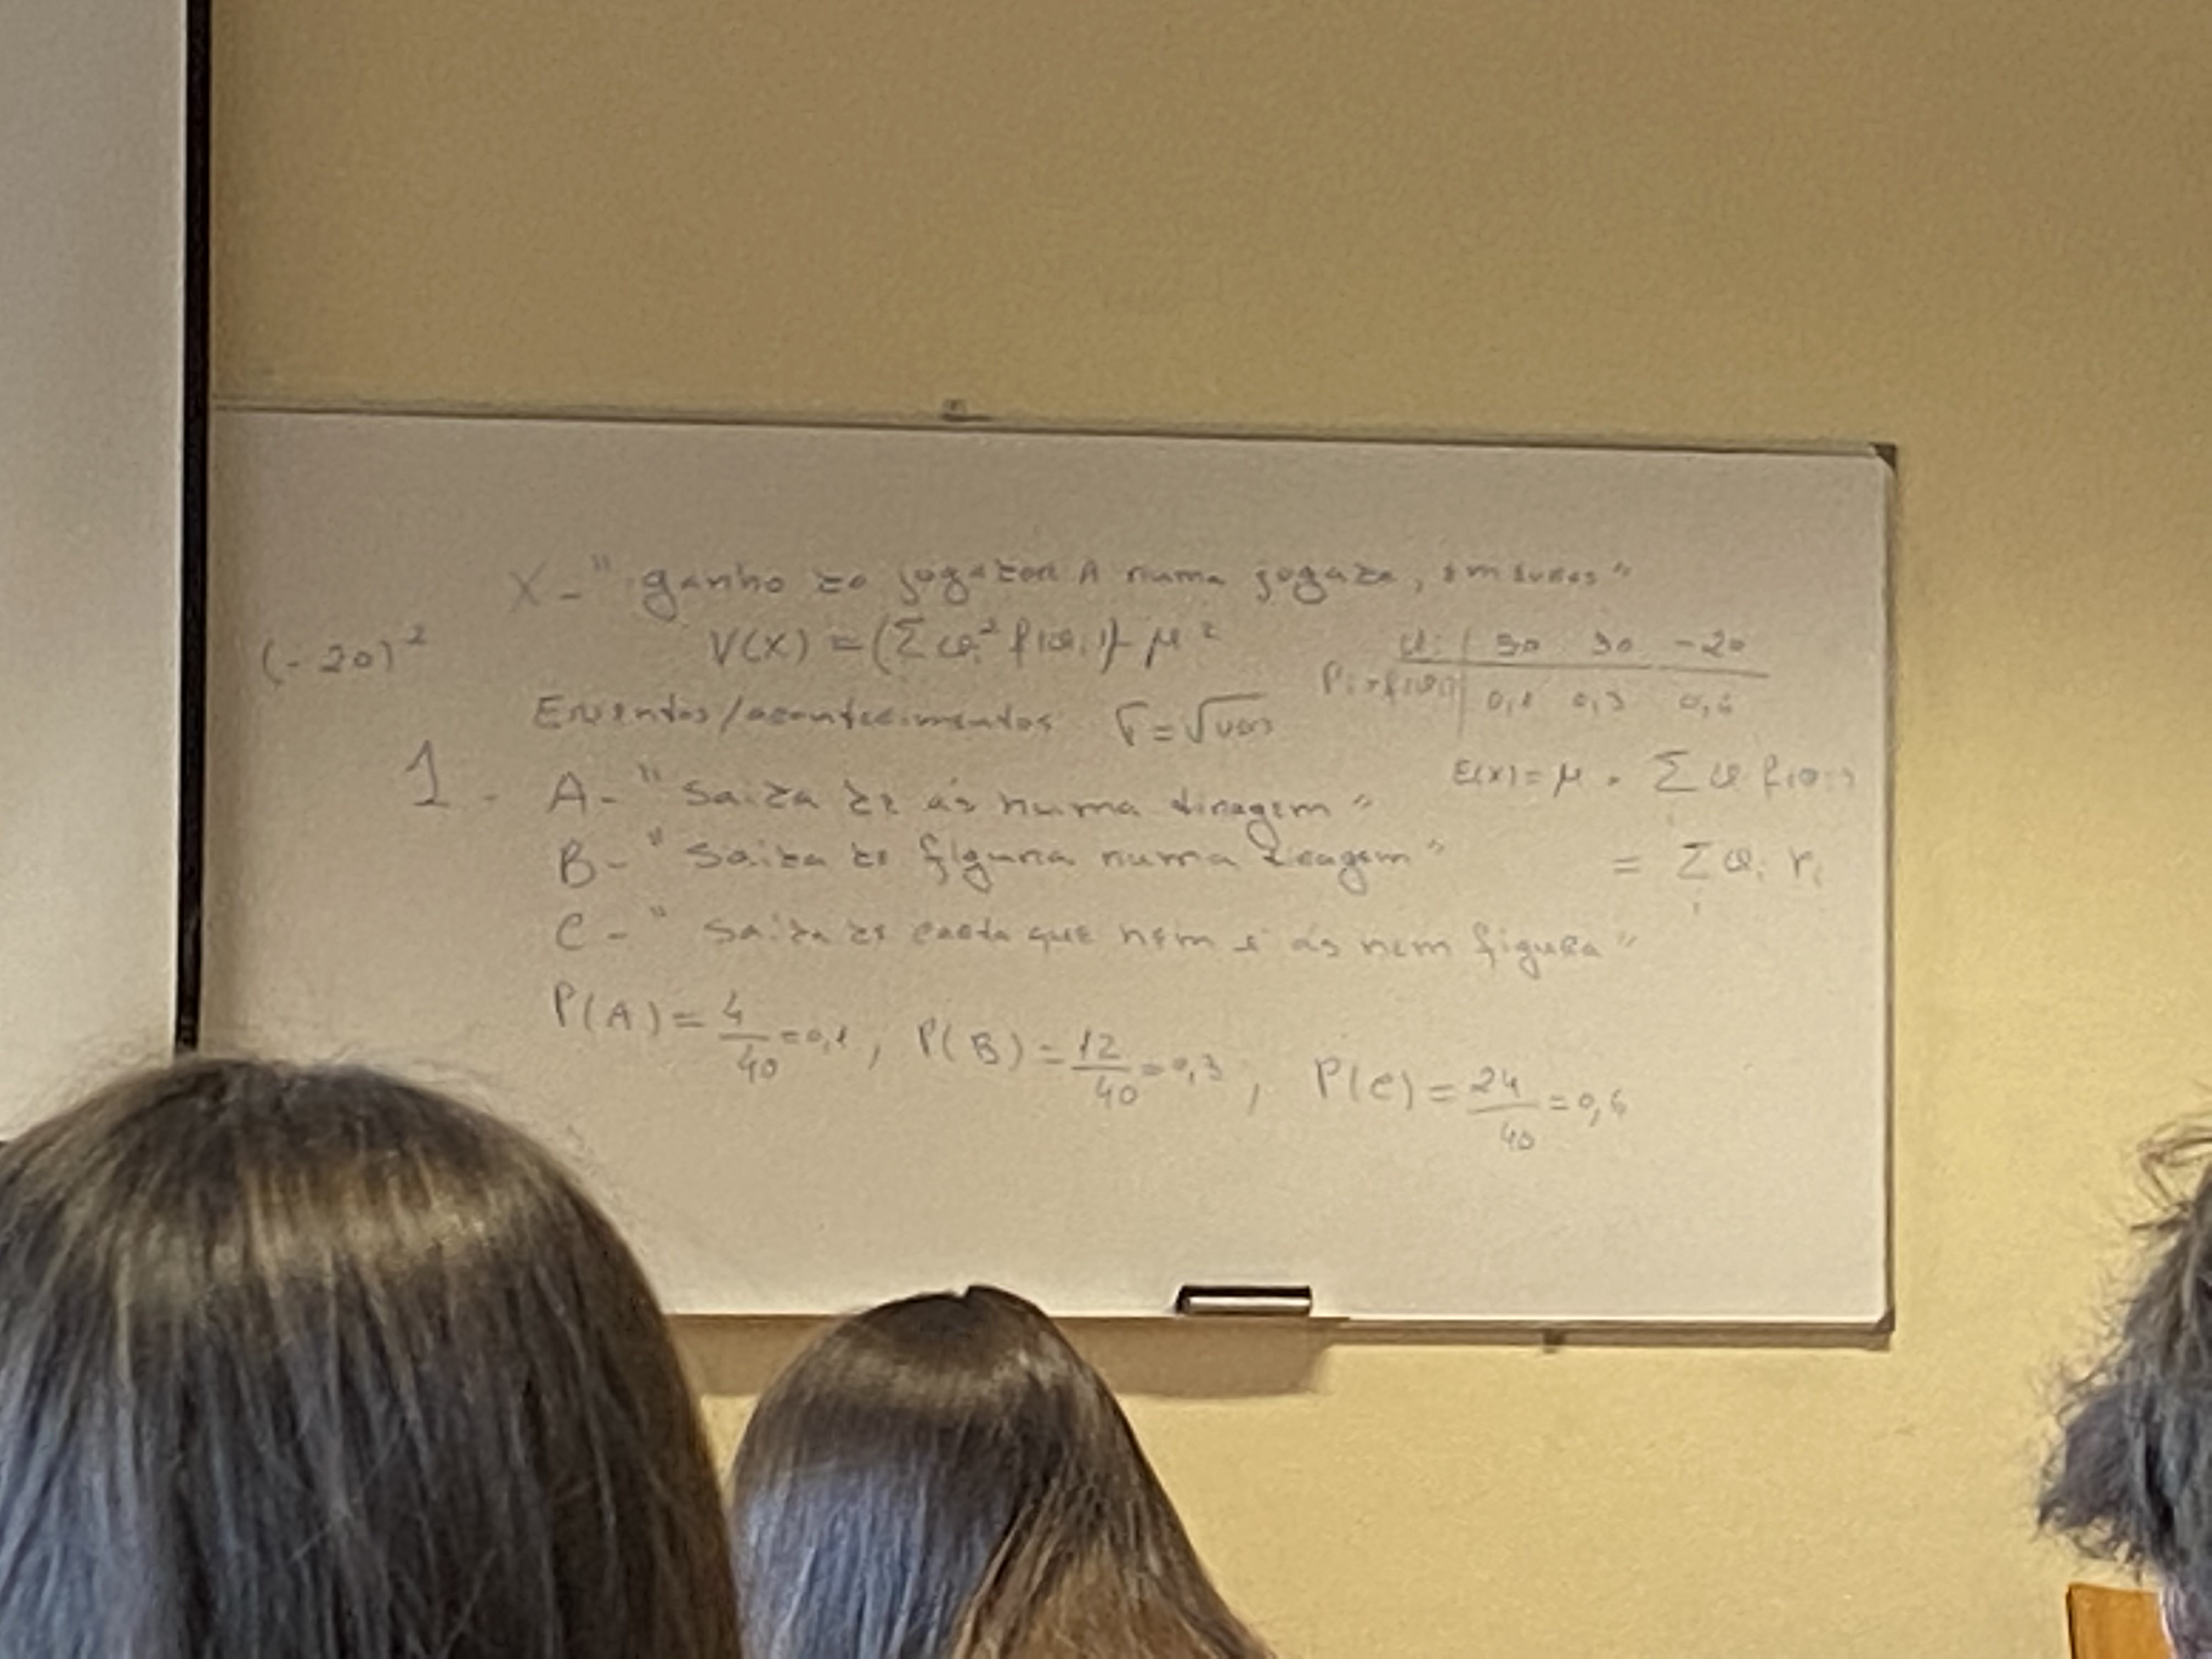 X - " ganho do jogador A numa jogada, em euros "
(-20)²
V(X) = (Σ xᵢ² f(xᵢ)) - μ²
xᵢ | 50 30 -20
Pᵢ = f(xᵢ) | 0,1 0,3 0,6
Eventos/acontecimentos σ = √var
E(X) = μ = Σ x f(xᵢ)
i
1 - A - " Saida de ás numa tiragem "
B - " Saida de figura numa tiragem "
= Σ xᵢ Pᵢ
i
C - " Saida de carta que nem é ás nem figura "
P(A) = 4/40 = 0,1 , P(B) = 12/40 = 0,3 , P(C) = 24/40 = 0,6